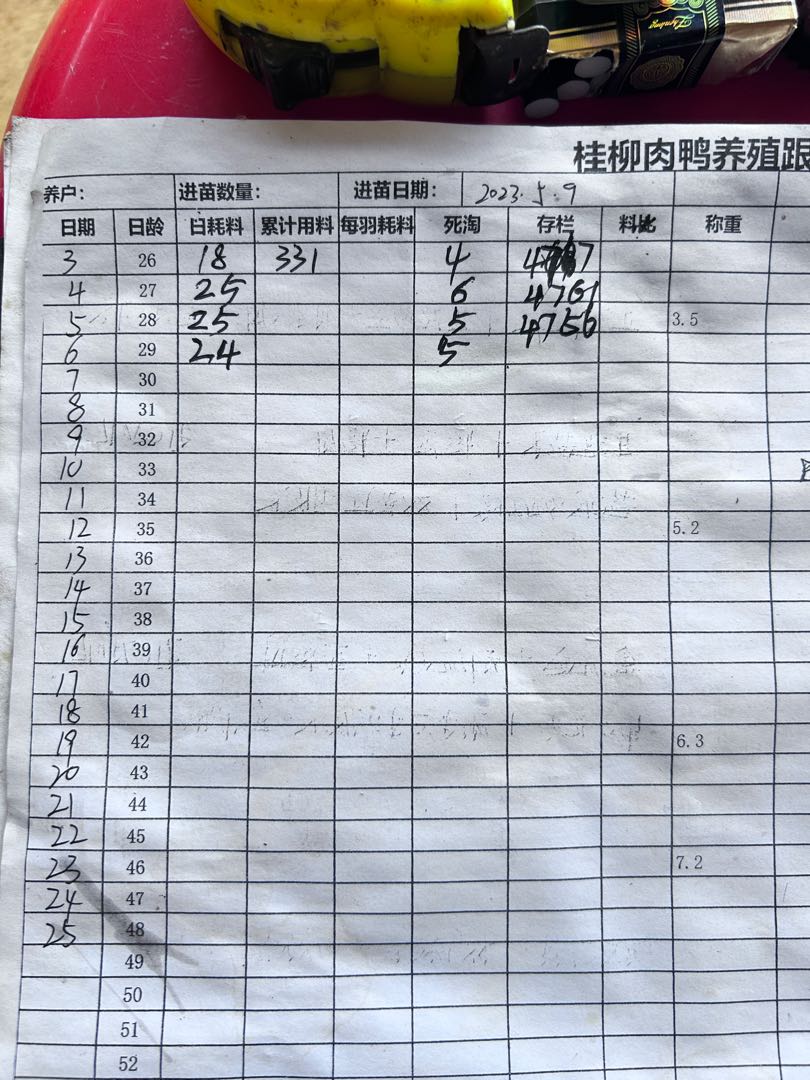 桂柳肉鸭养殖跟
养户： 进苗数量： 进苗日期： 2023.5.9
日期 日龄 日耗料 累计用料 每羽耗料 死淘 存栏 料比 称重
3 26 18 331 4
4 27 25 6 4761
5 28 25 5 4756 3.5
6 29 24 5
7 30
8 31
9 32
10 33
11 34
12 35 5.2
13 36
14 37
15 38
16 39
17 40
18 41
19 42 6.3
20 43
21 44
22 45
23 46 7.2
24 47
25 48
49
50
51
52